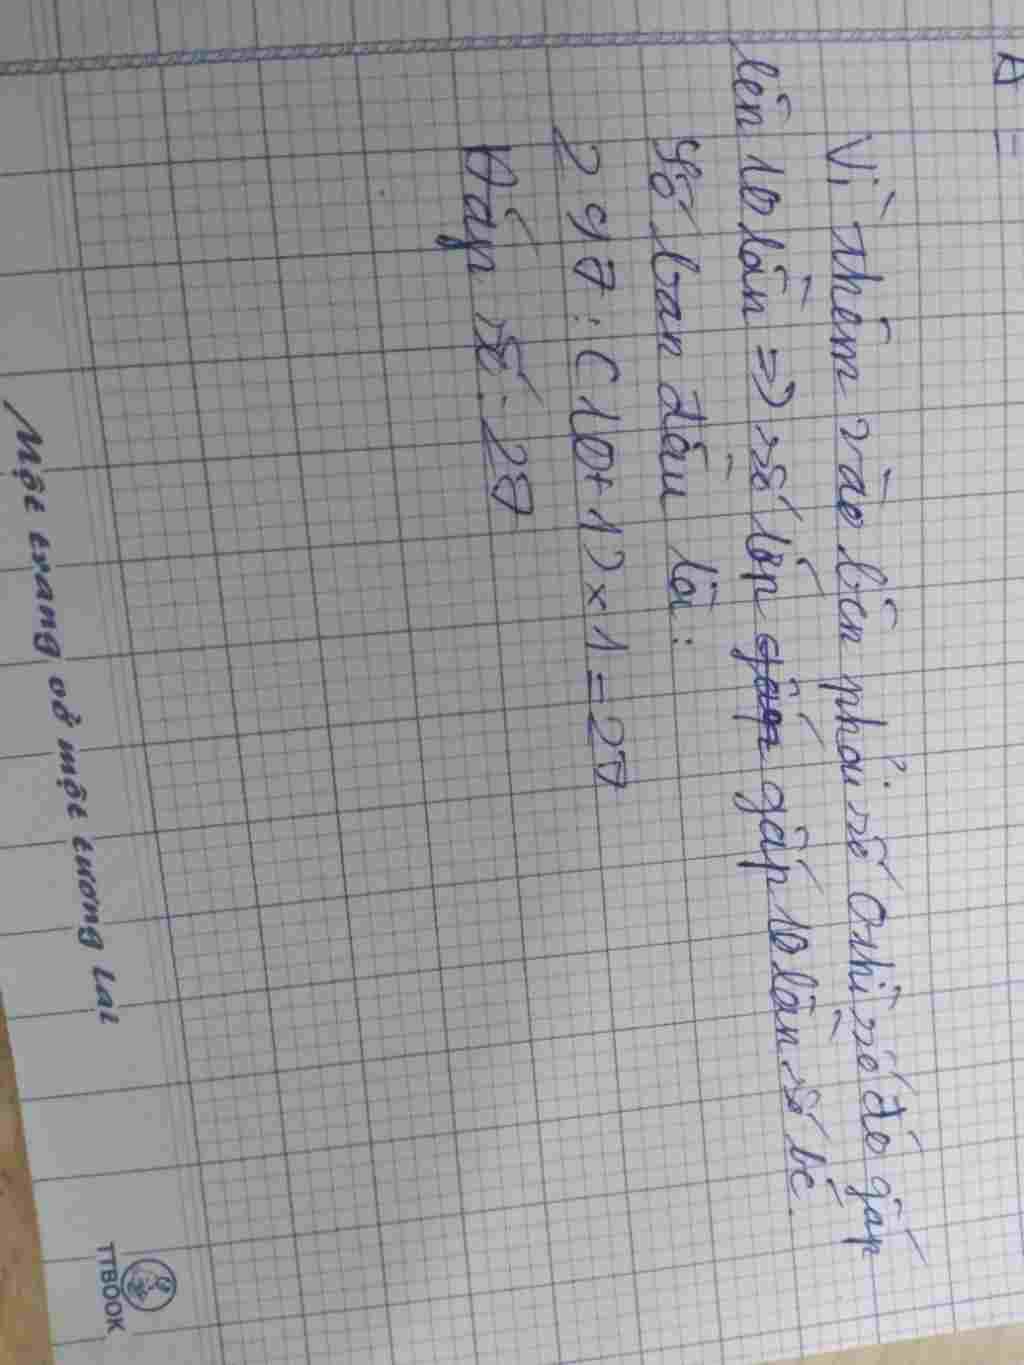 A =
Vì thêm vào bên phải số 0 thì số đó gấp
lên 10 lần => số lớn gấp 10 lần số bé.
Số ban đầu là:
297 : (10 + 1) x 1 = 27
Đáp số: 27
Một trang vở một tương lai
TTBOOK